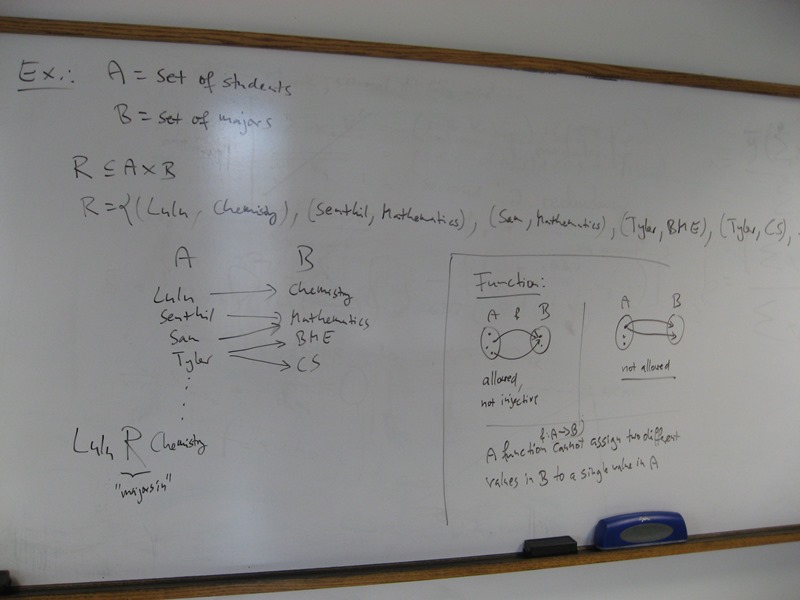 Ex.: A = set of students
B = set of majors
R ⊆ A×B
R={(Lulu, Chemistry), (Senthil, Mathematics), (Sam, Mathematics), (Tyler, BME), (Tyler, CS),
A B
Lulu → Chemistry
Senthil → Mathematics
Sam → BME
Tyler → CS
Lulu R Chemistry
"majors in"
Function:
A f B
allowed,
not injective
A B
not allowed
f: A→B
A function cannot assign two different
values in B to a single value in A